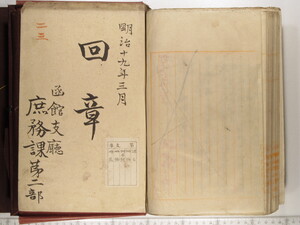 明治十九年三月
回章
函館支廳
庶務課第二部
二三